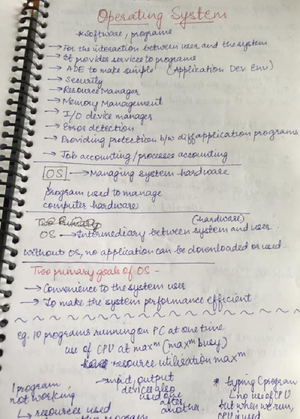 Operating System
* Software, programs
→ For the interaction between user and the system
→ It provides services to programs
→ ADE to make simple (Application Dev Env)
→ Security
→ Resource Manager
→ Memory Management
→ I/O device manager
→ Error detection
→ Providing protection b/w diff application programs
→ Job accounting/processes accounting
OS → Managing system hardware
program used to manage
computer hardware
(hardware)
OS → Intermediary between system and user
Without OS, no application can be downloaded or used
Two primary goals of OS -
→ Convenience to the system user
→ To make the system performance efficient
eg. 10 programs running on PC at one time
use of CPU at maxᵐ (maxᵐ busy)
resource utilisation maxᵐ
1 program, → input, output * typing C program
not working devices also no use of CPU
used one but when we run
→ resources used after CPU is used
another